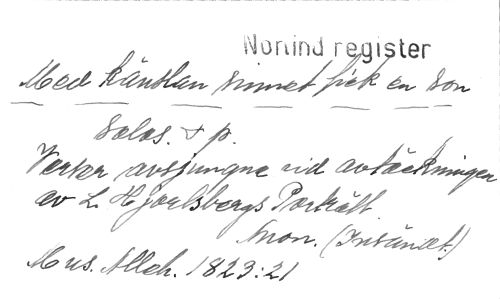 Norlind register
Med känslan sinnet fick en son
Solos. & p.
Verser avsjungne vid avtäckningen
av L Hjortsbergs Porträtt
Anon. (Insändt.)
Mus. Alleh. 1823:21